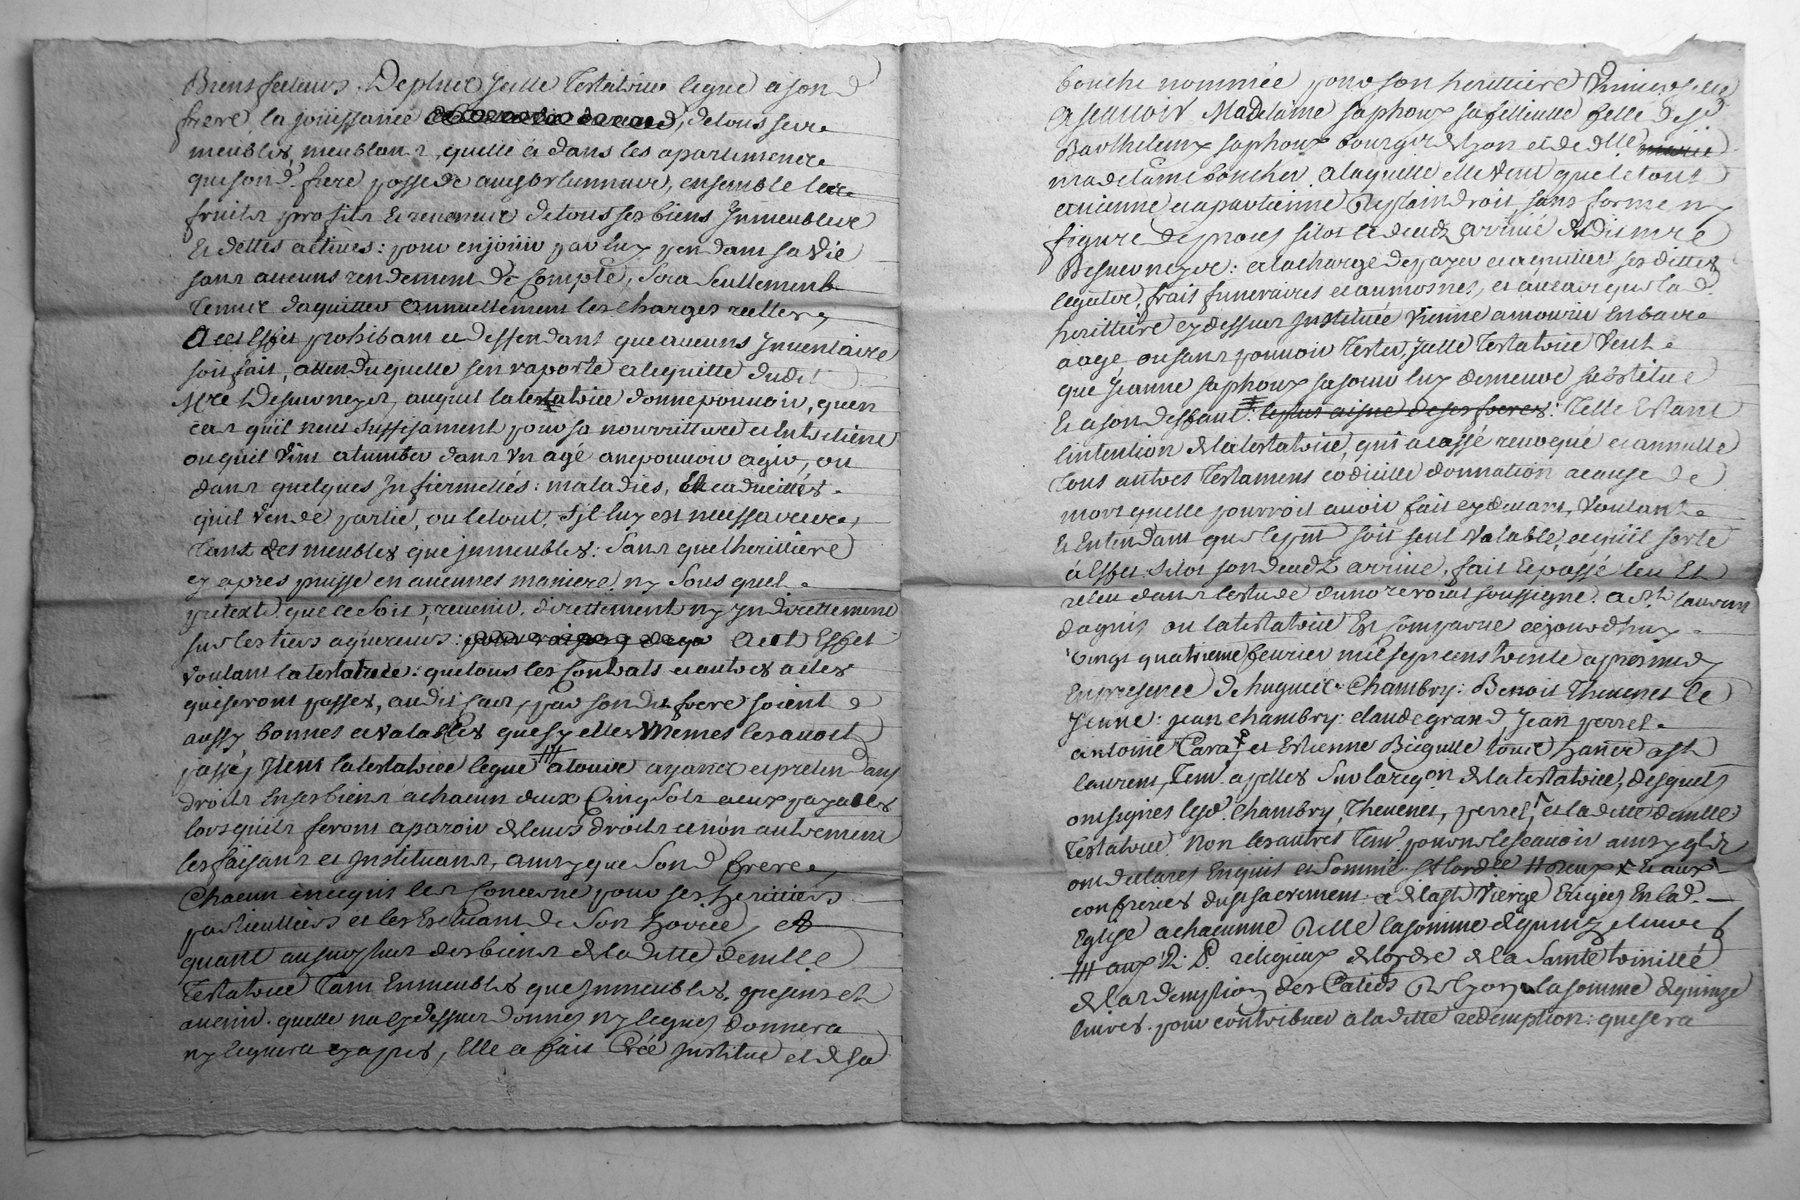 Biensfacteurs. De plus laditte testatrice legue a son d
frere, la joüissance de tous ses
meubles, meublans, quelle a dans les apartements
que son d. frere possede aujourdhuy, ensemble les
fruits profits et revenus de tous ses biens Immeubles
Et dettes actives: pour en joüir par luy pendant sa vie
sans aucuns rendement de Compte, Sera seullement
tenu daquitter annuellement les charges reelles,
A cet Effet prohibant et deffendant que aucuns Inventaire
soit fait, attendu quelle sen raporte a lequitté dudit
auquel la testatrice donne pouvoir, quen
cas quil neut suffisament pour sa nourritture et Entretient
ou quil vint a tomber dans un agé a ne pouvoir agir, ou
dans quelques Infiermettés: maladies, Et caducittés
quil vende partie, ou le tout, Sil luy est necessaire,
tant des meubles que immeubles: Sans que lherittiere
cy apres puisse en aucunes maniere, ny Sous quel
pretexte que ce soit, revenir directtement ny Indirecttement
sur les tiers aquereurs: A cet Effet
voulant la testatrice: que tous les Contrats et autres actes
qui seront passes, audit sauf, par son dit frere soient
aussy bonnes et valables que sy elles memes les avoit
passé, Item la testatrice legue ### a tous ayants et pretendans
droits En ses biens a chacun deux Cinq Sols a eux payables
lorsquils feront aparoir de leurs droits et non autrement
les faisant et Instituans, ainsy que Son d frere
Chacun en ce qui les Concerne pour ses heritiers
particulliers et les Excluant de Son hoirie, et
quant au surplus des biens de laditte demlle
Testatrice Tant Enmeubles que Immeubles, presens et
avenir. quelle na cy dessus donnes ny legues donnera
ny leguera cy apres, Elle a fait Créé Institue et de sa
bouche nommée pour son herittiere Universelle
Asscavoir Madelaine saphoux sa fillieulle fille de sr
Barthelemy saphoux bourgs de lyon et de dlle
madelaine boucher. a laquelle elle veut que le tout
avienne et apartienne De plain droit sans forme ny
figure de proces sitot le deced arrivé dudit mre
a la charge de payer et aquitter ses dittes
legattes, frais funeraires et aumosnes, et au cas que la d.
herittiere cy dessus Instituée vienne a mourir En bas
aage, ou sans pouvoir tester, Jcelle testatrice veut
que Jeanne saphoux sa soeur luy demeure substituée
Et a son deffaut: le plus aisné de ses freres: Telle Estant
lintention de la testatrice, qui a cassé revoqué et annullé
tous autres testamens codicille donnation a cause de
mort quelle pourroit avoir fait cy devant, voulant
Et Entendant que le pnt soit seul valable, et quil sorte
a Effet. Sitot son deced arrivé, fait Et passé leu Et
releu dans lestude du nore royal soussigné. a St laurent
dagnis ou la testatrice Est Comparue cejourdhuy
vingt quatrieme fevrier mil sept cens trente apres midy
En presence de huguet Chambry: Benoit Thevenet le
Jeune: jean chambry: claude grand Jean perret
antoine Cara & et Estienne Biguelle tous hants a St
laurens, Tem. apelles Sur la reqon. de la testatrice, desquels
ont signes lesd. Chambry, Thevenet, perret, et laditte demlle
testatrice. Non les autres tem. pour ne le scavoir ainsy quils
ont declares Enquis et Sommé
confreries du st sacrement: & de la st vierge Erigées En lad.
Eglise a chacunne Delle la somme de quinze livres
### aux R. P. religieux de lordre de la Sainte trinitté
de la redemption des Catifs De lyon la somme de quinze
livres. pour contribuer a laditte redemption: que sera